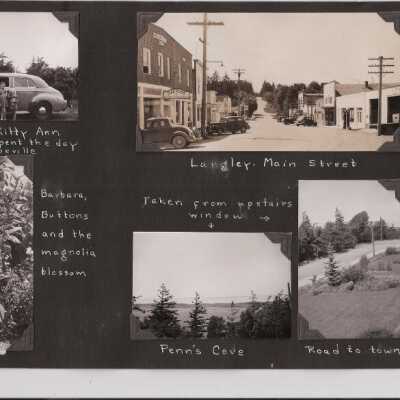 Kitty Ann
spent the day
Langley. Main Street
Barbara,
Buttons
and the
magnolia
blossom
Taken from upstairs
window
Penn's Cove
Road to town